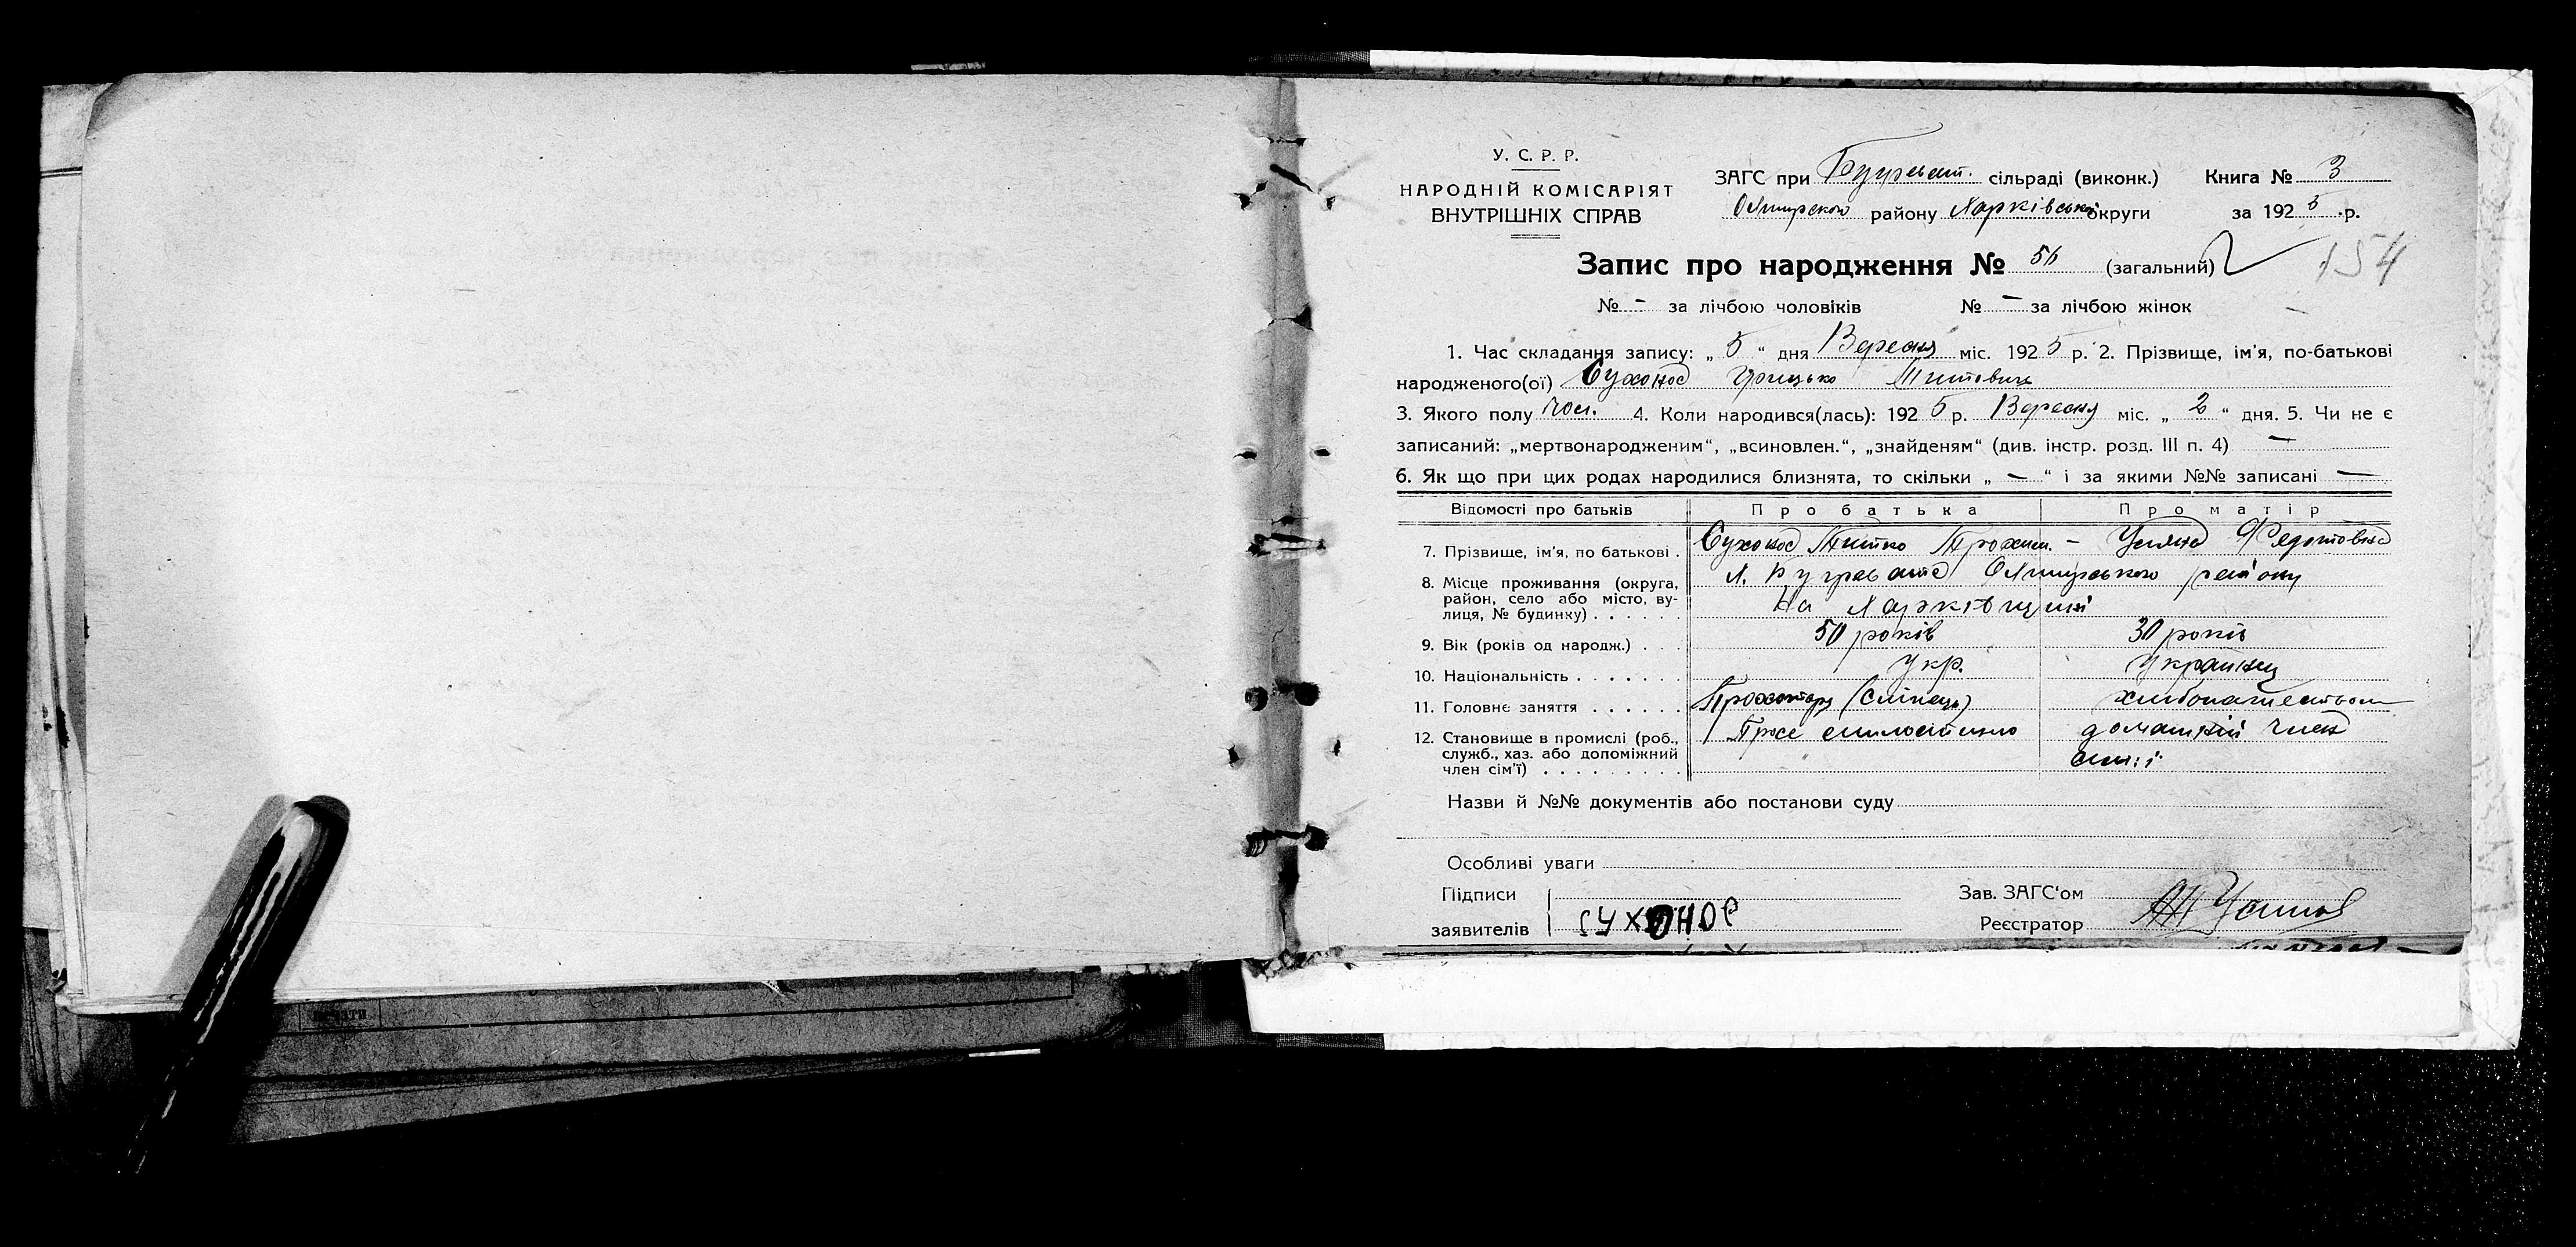 У. С. Р. Р.
НАРОДНІЙ КОМІСАРІЯТ
ВНУТРІШНІХ СПРАВ
ЗАГС при Бугреват. сільраді (виконк.) Книга № 3
району Харківської округи за 1925 р.
154
Запис про народження № 56 (загальний)
№ - за лічбою чоловіків № - за лічбою жінок
1. Час складання запису: „ 5 “ дня Вересня міс. 1925 р. 2. Прізвище, ім'я, по-батькові
народженого(ої) Сухонос Грицько Титович
3. Якого полу чол. 4. Коли народився(лась): 1925 р. Вересня міс. „ 2 “ дня. 5. Чи не є
записаний: „мертвонародженим“, „всиновлен.“, „знайденям“ (див. інстр. розд. III п. 4) —
6. Як що при цих родах народилися близнята, то скільки „ — “ і за якими №№ записані —
Відомості про батьків Про батька Про матір
7. Прізвище, ім'я, по батькові . Сухонос Титко Трохим. - Уляна Федотовна
8. Місце проживання (округа,
район, село або місто, ву-
лиця, № будинку) . . . . . .
х. Бугревата району
на Харківщині
9. Вік (років од народж.) . . . 50 років 30 років
10. Національність . . . . . . . укр. українка
11. Головне заняття . . . . . . (сліпець) хлібопашеством
12. Становище в промислі (роб.,
служб., хаз. або допоміжний
член сім'ї) . . . . . . . . .
Просе милостиню
домашній член
сім'ї
Назви й №№ документів або постанови суду
Особливі уваги
Підписи
заявителів
СУХОНОС
Зав. ЗАГС'ом
Реєстратор